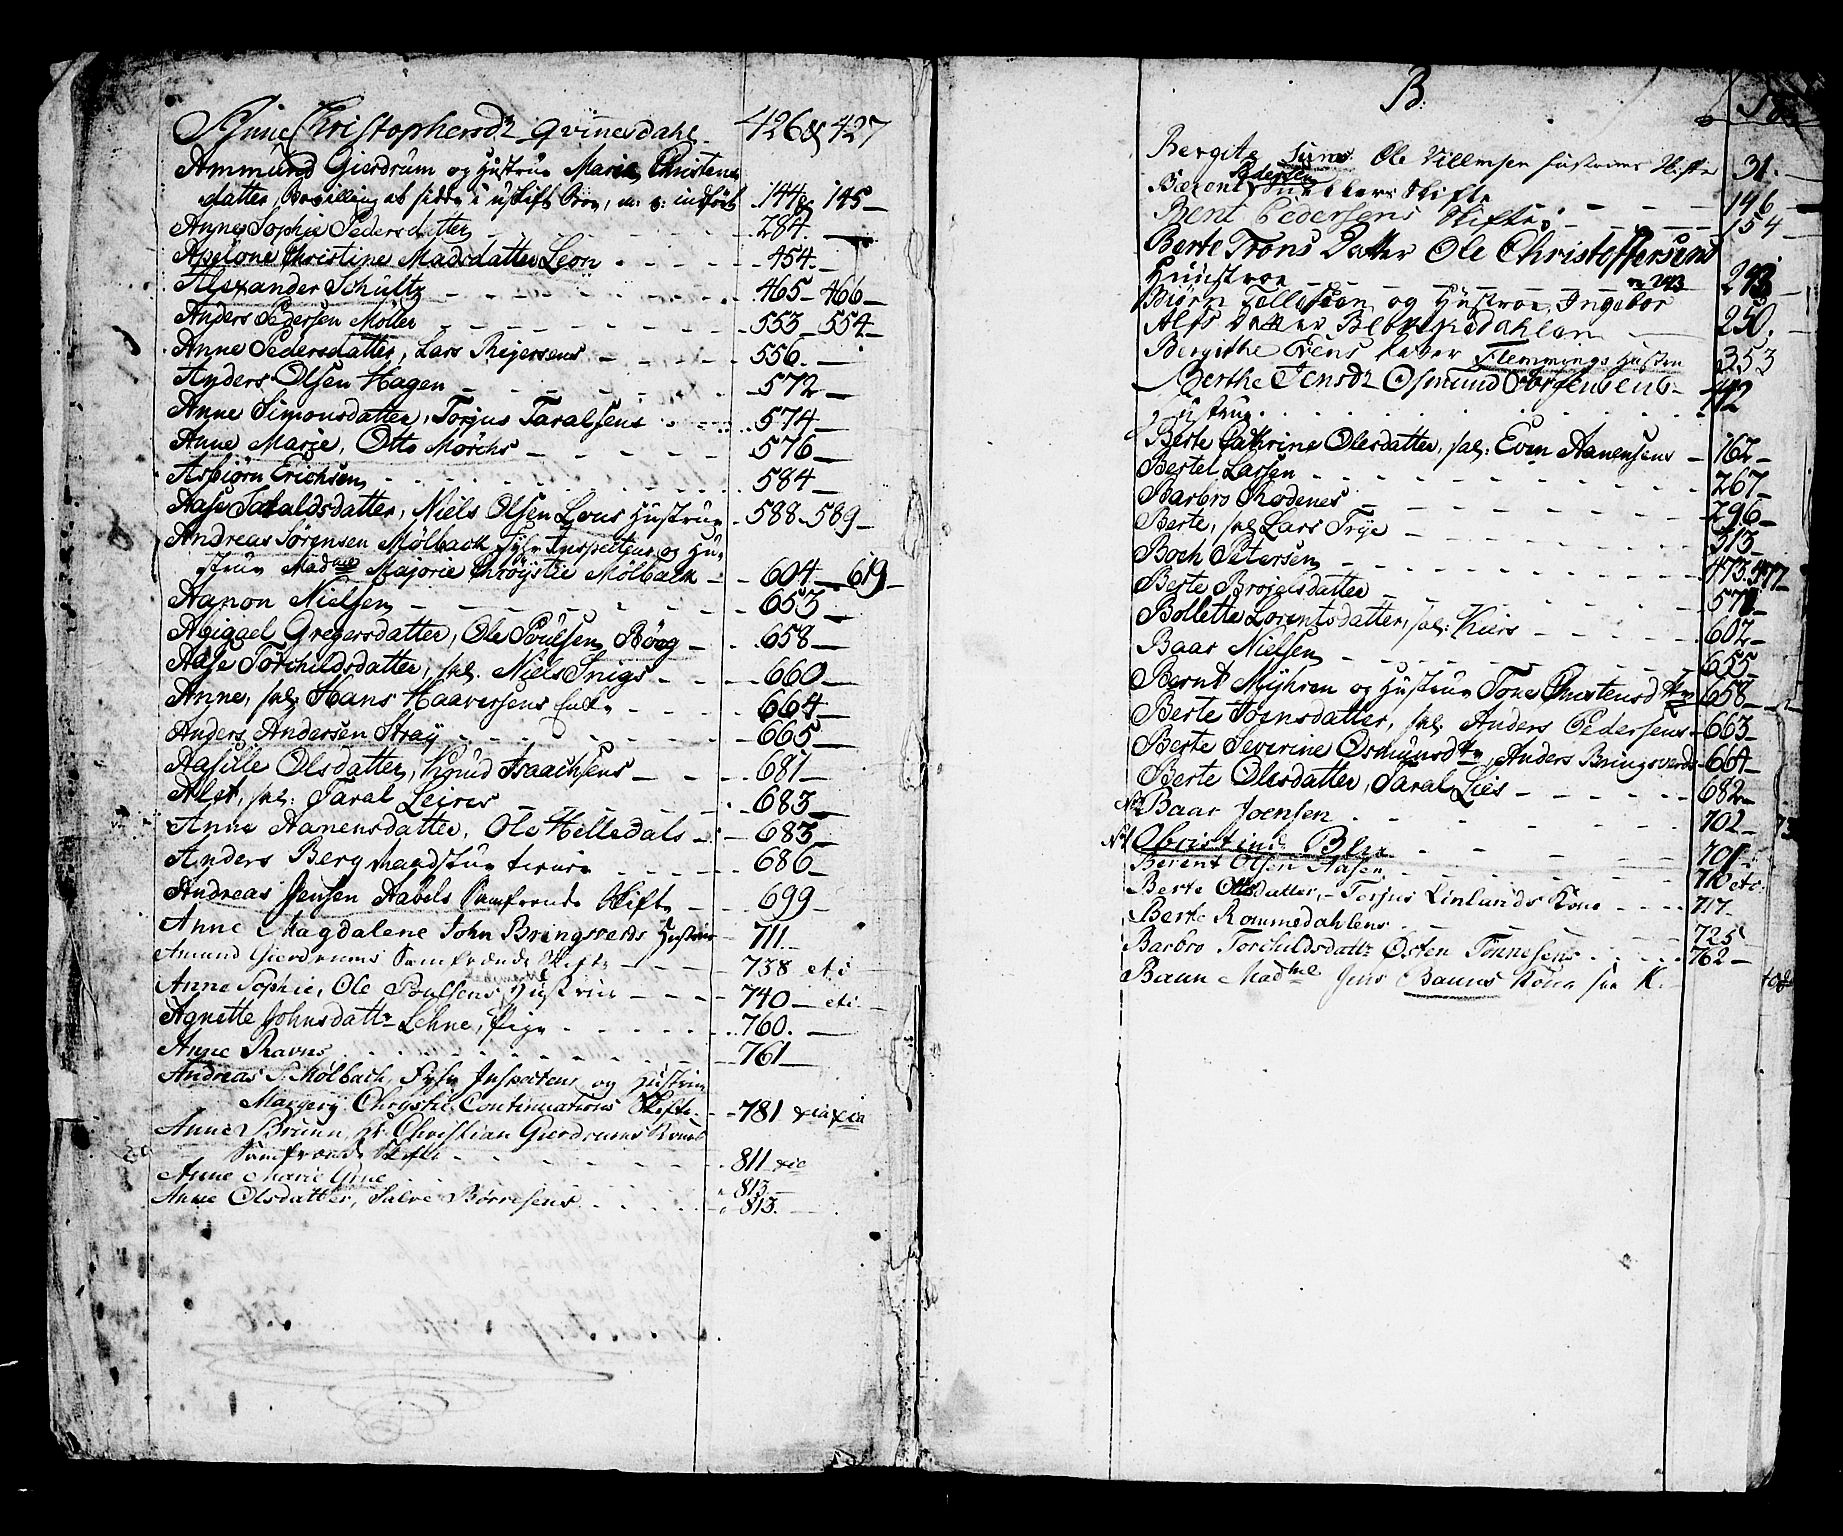 Anne Christophersdr Qvinesdahl 426 & 427
Ammund Gierdrum og Hustrue Maria Christens
datter, Bevilling at sidde i uskift Boe, indført 144 & 145
Anne Sophie Pedersdatter 284
Apelone Christine Madsdatter Leon 454
Alexander Schultz 465 - 466
Anders Pedersen Möller 553 - 554
Anne Pedersdatter, Lars Reiersens 556
Anders Olsen Hagen 572
Anne Simonsdatter, Torjus Taralsens 574
Anne Marie, Otto Mörchs 576
Asbiörn Erichsen 584
Aase Taraldsdatter, Niels Olsen Hustrue 588 - 589
Andreas Sørensen Mölback Inspecteur og Hu-
strue Madme Majorie Chröystie Mölback 604 - 619
Aanon Nielsen 653
Abigael Gregersdatter, Ole Poulsen Röög 658
Aase Torchildsdatter, sal. Niels Snigs 660
Anne, sal. Hans Haaversens Enke 664
Anders Andersen Straÿ 665
Aasille Olsdatter, Knud Isaachsens 681
Alet, sal: Taral Leires 683
Anne Aanensdatter, Ole Helledals 683
Anders Berg 686
Andreas Jensen Aabels Samfrende Skifte 699
Anne Magdalene John Bringsverds Hustrue 711
Amund Gierdrums Samfrænde Skifte 738 etc
Anne Sophie, Ole Poulsens Hustrue 740 etc
Agnette Johnsdattr Lehne, Pige 760
Anne Ravns 761
Andreas S. Mölbach, Inspecteur og Hustrue
Margery Chrystie Continuations Skifte 781
Anne Brunn, Christian Gierdrums Kones
Samfrænde Skifte 811
Anne Marie 813
Anne Olsdatter, Salve Börresens 813
B
Bergite Ole Villumsen Hustrues Skifte 31
Berent Pedersen Skifte 146
Bent Pedersens Skifte 154
Berte Trons Datter Ole Christoffersens
Huustroe 243
Biørn Tellefsen og Hustroe Ingebor
Alfs Datter 250
Bergithe Flemmings Hustru 353
Berthe Jensdr Osmund Torgensens
Hustrue 412
Berte Cathrine Olesdatter, sal: Even Aanensens 162
Bertel Larsen 267
Barbro Rodenes 296
Berte, sal Lars Frye 313
Boch Petersen 473 477
Berte Brojelsdatter 571
Bollette Lorentsdatter, sal: Kiers 602
Baar Nielsen 655
Bernt Myhren og Hustrue Tone Christensdtr 658
Berte Joensdatter, sal Anders Pedersens 663
Berte Severine Osmunsdtr, Anders Bringsverds 664
Berte Olesdatter, Taral Lies 682
Baar Joensen 702
Christine Blix 701
Berent Olsen Aasen 710 etc.
Berte Olsdatter, Terjus Linlands Kone 717
Berte Rommedahlens 725
Barbro Torchildsdattr Østen Tönnesens 762
Baun Madme Jens Bauns Kone see K.